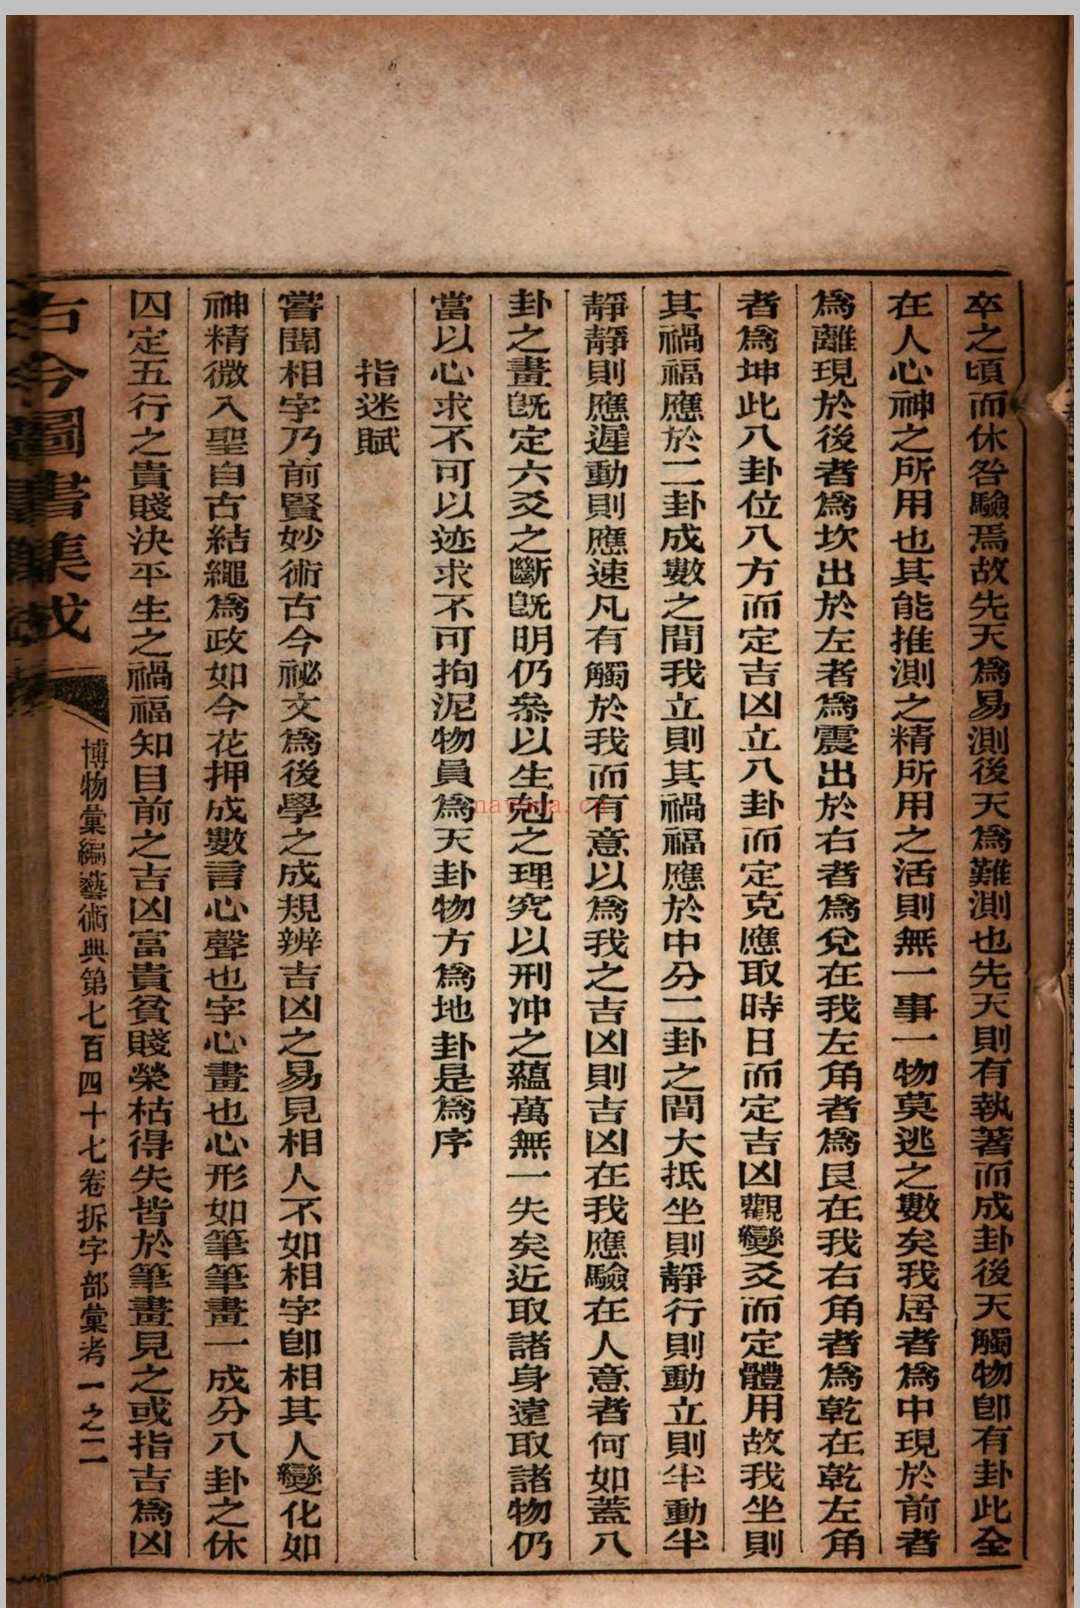 卒之頃而休咎驗焉故先天爲易測後天爲難測也先天則有執著而成卦後天觸物卽有卦此全
在人心神之所用也其能推測之精所用之活則無一事一物莫逃之數矣我居者爲中現於前者
爲離現於後者爲坎出於左者爲震出於右者爲兌在我左角者爲艮在我右角者爲乾在乾左角
者爲坤此八卦位八方而定吉凶立八卦而定克應取時日而定吉凶觀變爻而定體用故我坐則
其禍福應於二卦成數之間我立則其禍福應於中分二卦之間大抵坐則靜行則動立則半動半
靜靜則應遲動則應速凡有觸於我而有意以爲我之吉凶則吉凶在我應驗在人意者何如蓋八
卦之畫旣定六爻之斷旣明仍叅以生尅之理究以刑冲之蘊萬無一失矣近取諸身遠取諸物仍
當以心求不可以迹求不可拘泥物員爲天卦物方爲地卦是爲序
指迷賦
嘗聞相字乃前賢妙術古今祕文爲後學之成規辨吉凶之易見相人不如相字卽相其人變化如
神精微入聖自古結繩爲政如今花押成數言心聲也字心畫也心形如筆筆畫一成分八卦之休
囚定五行之貴賤決平生之禍福知目前之吉凶富貴貧賤榮枯得失皆於筆畫見之或指吉爲凶
古今圖書集成
博物彙編藝術典第七百四十七卷拆字部彙考一之二
nayona.cn